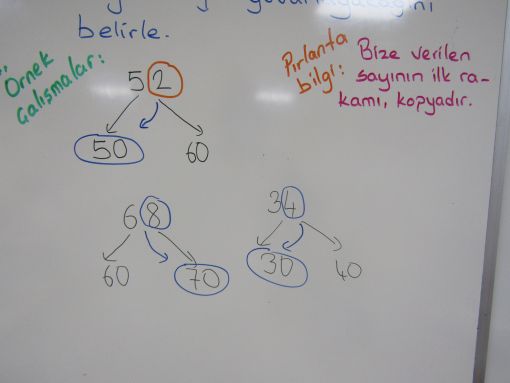 belirle.
Örnek
Çalışmalar:
Pırlanta
bilgi:
Bize verilen
sayının ilk ra-
kamı, kopyadır.
52
50 60
68
60 70
34
30 40